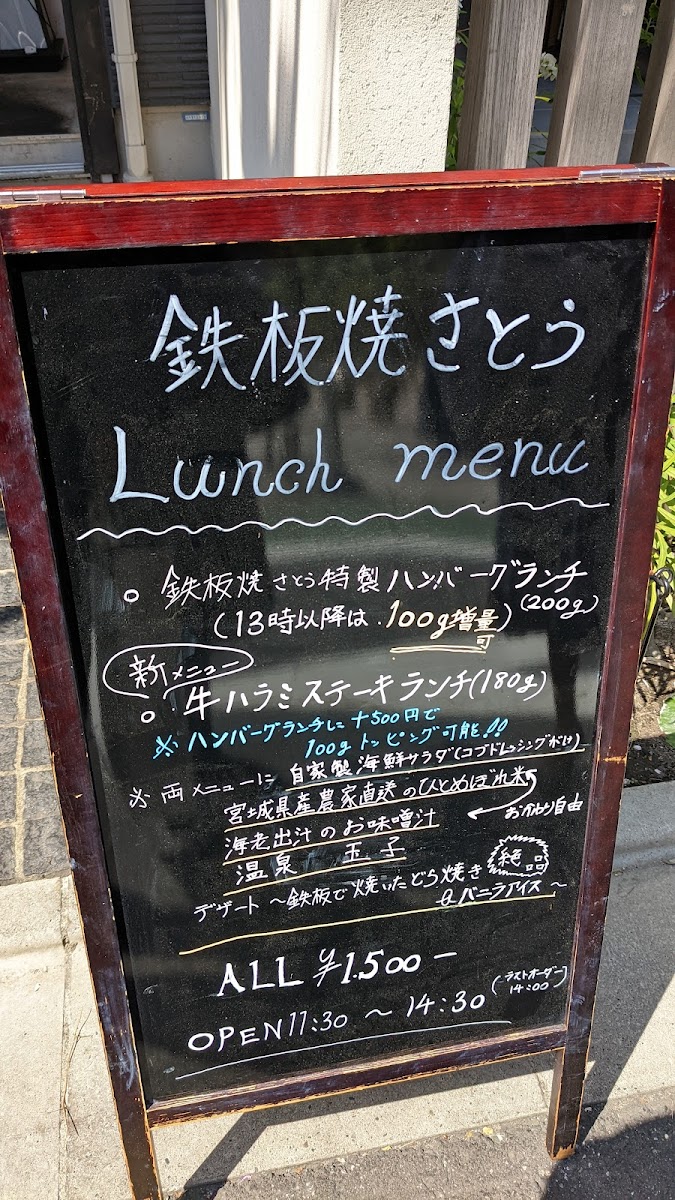 鉄板焼さとう
Lunch menu
○ 鉄板焼さとう特製ハンバーグランチ
(200g)
(13時以降は.100g増量)
可
新メニュー
○ 牛ハラミステーキランチ(180g)
※ハンバーグランチに+500円で
100gトッピング可能!!
※両メニューに 自家製海鮮サラダ(コブドレッシングがけ)
宮城県産農家直送のひとめぼれ米
海老出汁のお味噌汁
おかわり自由
温泉 玉子
デザート ~鉄板で焼いたどら焼き
&バニラアイス~
絶品
ALL ¥1.500-
OPEN 11:30 ~ 14:30
(ラストオーダー
14:00)